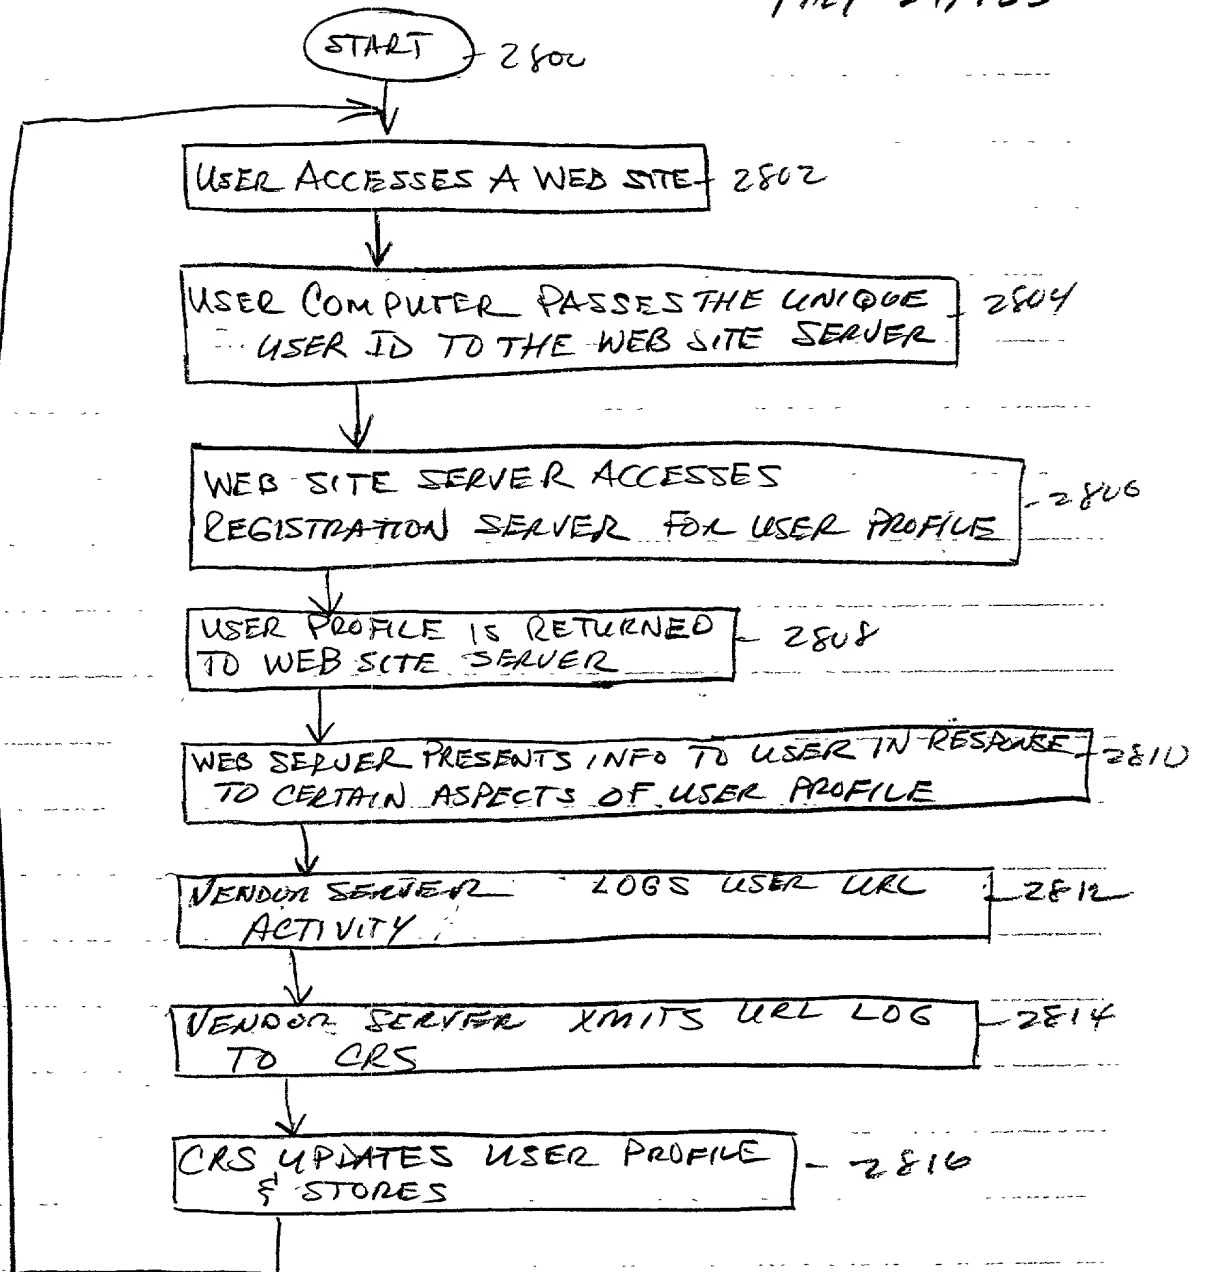 START 2800
USER ACCESSES A WEB SITE 2802
USER COMPUTER PASSES THE UNIQUE 2804
USER ID TO THE WEB SITE SERVER
WEB SITE SERVER ACCESSES
REGISTRATION SERVER FOR USER PROFILE 2806
USER PROFILE IS RETURNED 2808
TO WEB SITE SERVER
WEB SERVER PRESENTS INFO TO USER IN RESPONSE 2810
TO CERTAIN ASPECTS OF USER PROFILE
VENDOR SERVER LOGS USER URL 2812
ACTIVITY
VENDOR SERVER XMITS URL LOG 2814
TO CRS
CRS UPDATES USER PROFILE 2816
& STORES